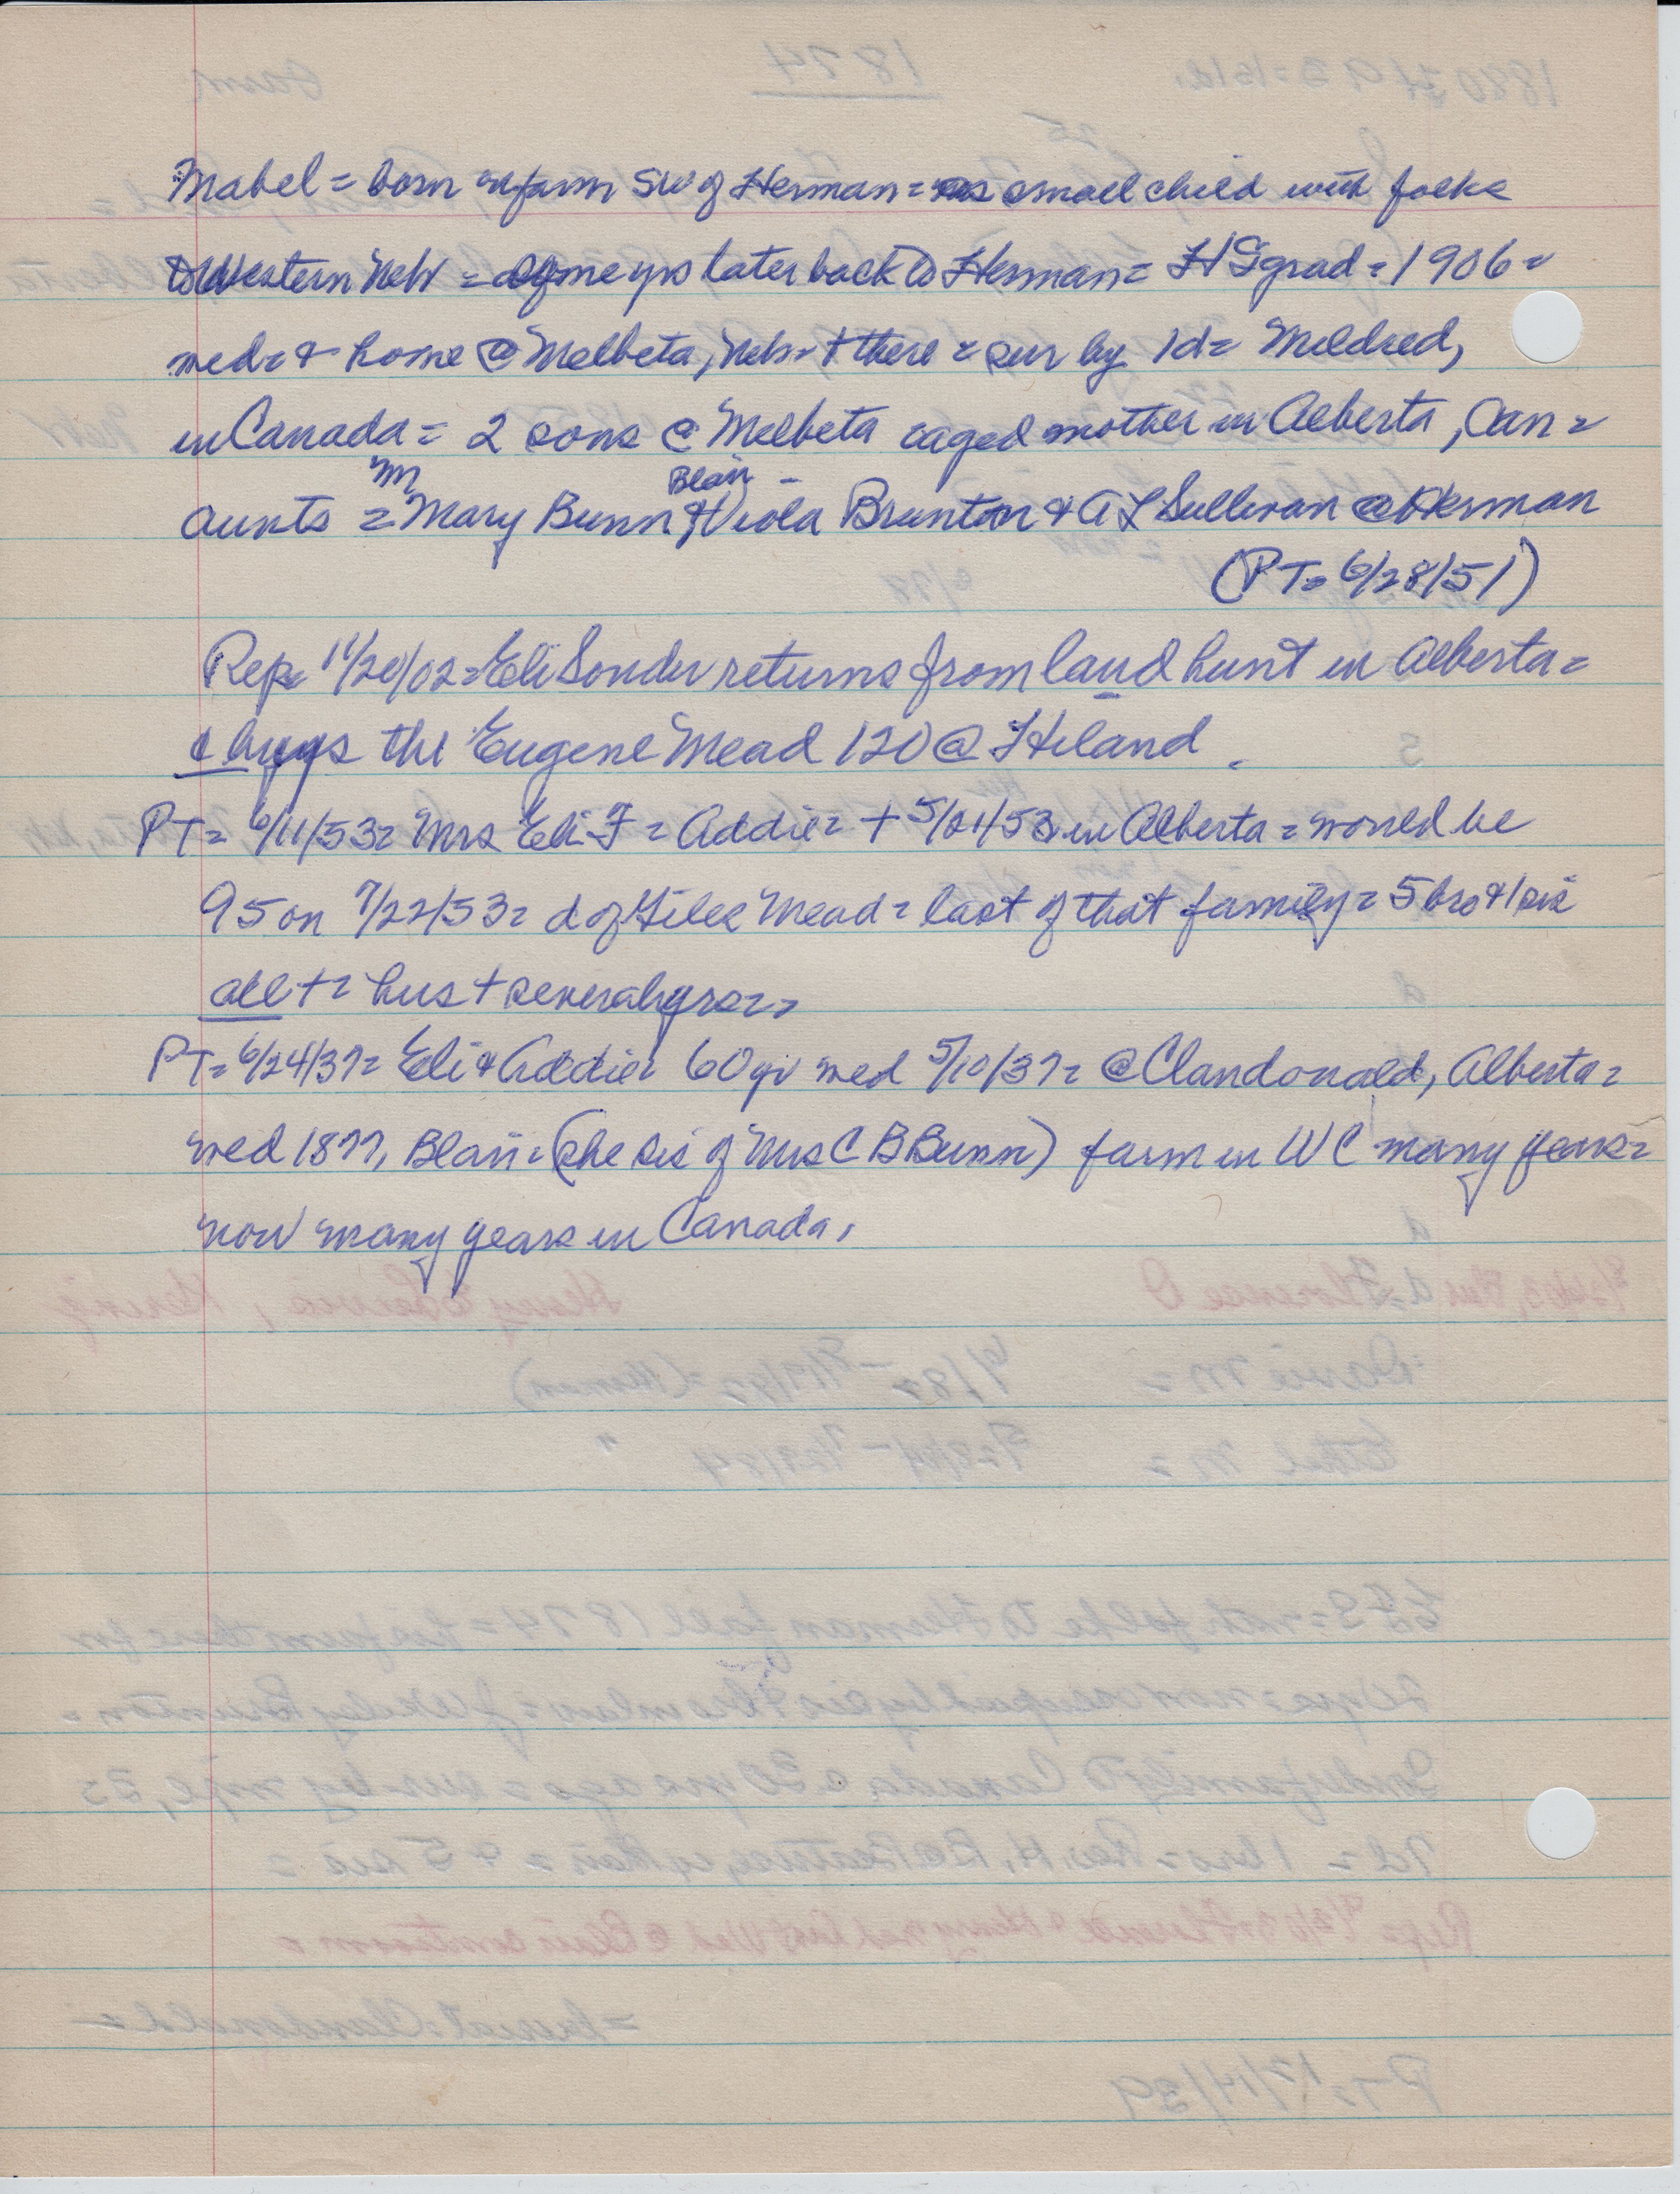 Mabel = born on farm SW of Herman = as small child with folks
to Western Neb = some yrs later back to Herman = HS grad = 1906 =
wed = & home @ Melbeta, Neb = + there = sur by 1d = Mildred,
in Canada = 2 sons @ Melbeta aged mother in Alberta, Can =
M Blair -
aunts = Mary Bunn & Viola Brunton & A L Sullivan @ Herman
(PT = 6/28/51)
Rep = 11/20/02 = Eli Sonder returns from land hunt in Alberta =
& buys the Eugene Mead 120 @ Hiland.
PT = 6/11/53 = Mrs Eli F = Addie = + 5/21/53 in Alberta = would be
95 on 7/22/53 = d of Giles Mead = last of that family = 5 bro & 1 sis
all + = hus + several yrs =
PT = 6/24/37 = Eli & Addie = 60 yr wed 5/10/37 = @ Clandonald, Alberta =
wed 1877, Blair = (she sis of Mrs C B Bunn) farm in WC many years =
now many years in Canada,